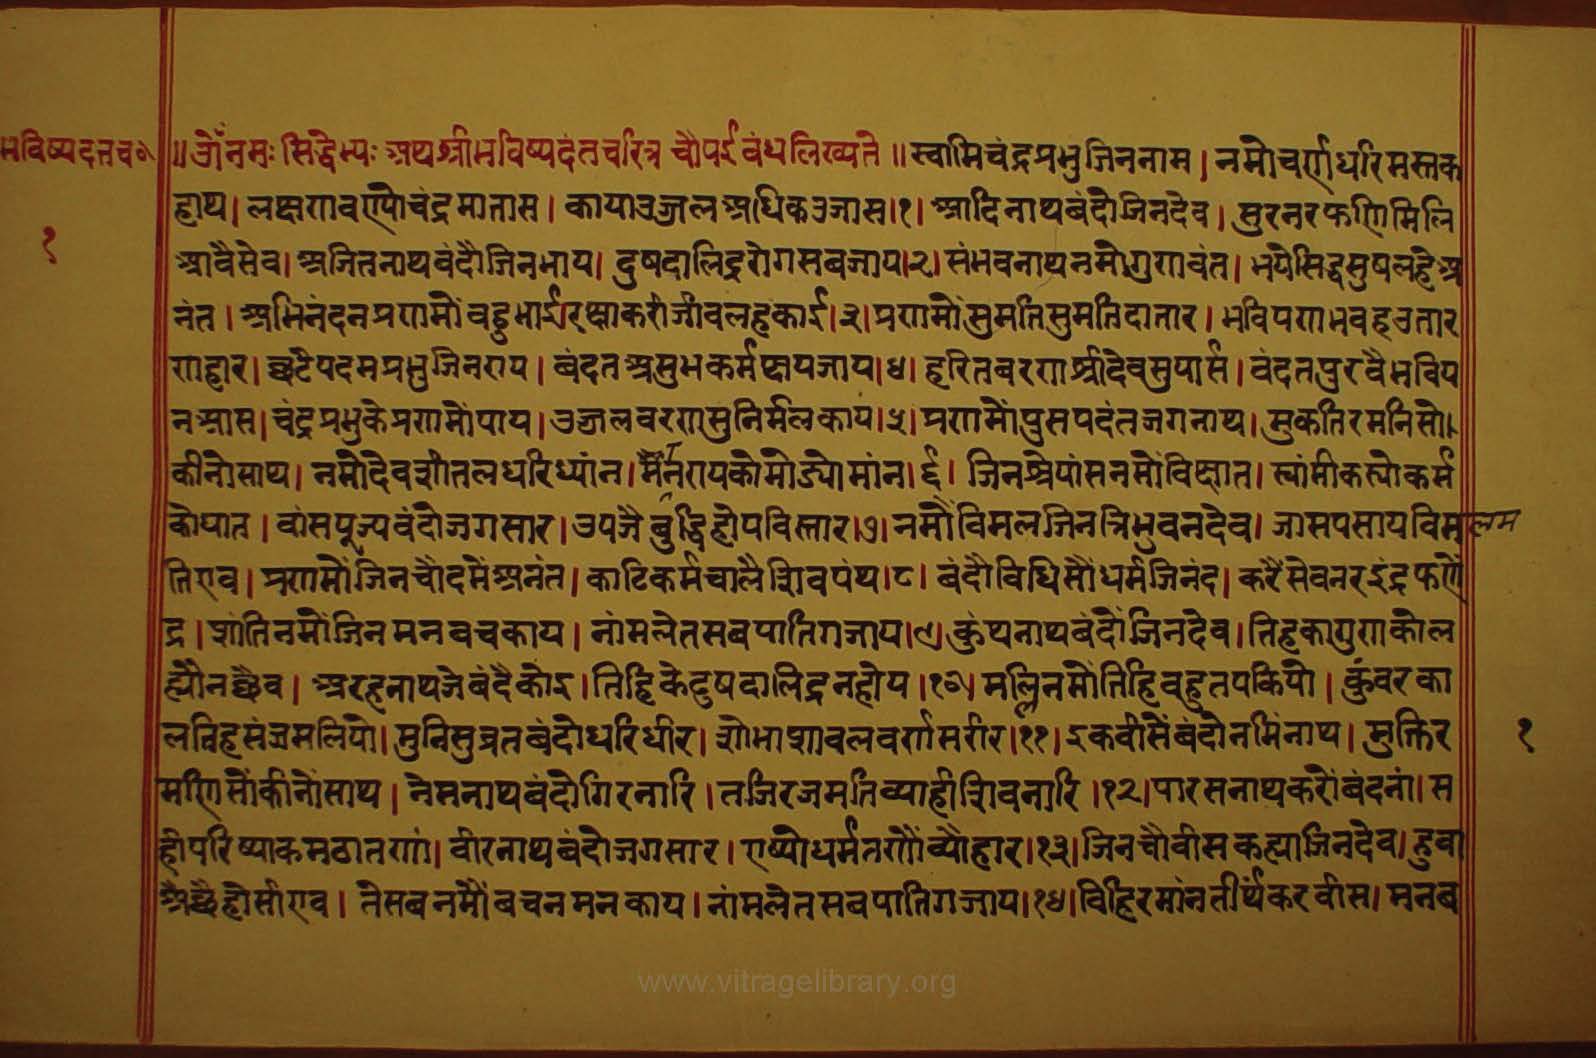 भविष्यदतच०
॥ॐनमः सिद्धेभ्यः अथश्रीभविष्यदंतचरित्र चौपईबंधलिख्यते॥स्वामिचंद्रप्रभुजिननाम।नमोचर्णधरिमस्तक
हाथ।लक्षणवण्योचंद्रमातास।कायाउज्जलअधिकउजास।१।आदिनाथबंदौजिनदेव।सुरनरफणिमिलि
१
आवैसेव।अजितनाथवंदौजिनभाय।दुषदालिद्ररोगसबजाय।२।संभवनाथनमोगुणवंत।भयेसिद्धसुषलहेअ
नंत।अभिनंदनप्रणमोंबहुभाई।रक्षाकरीजीवलहकाई।३।प्रणमोंसुमतिसुमतिदातार।भवियणभवहउतार
णहार।छटेपदमप्रभुजिनराय।बंदतअसुभकर्मक्षयजाय।४।हरितबरणश्रीदेवसुपार्स।वंदतपुरवैभविय
नआस।चंद्रप्रभुकेप्रणमोंपाय।उज्जलवरणसुनिर्मलकाय।५।प्रणमोंपुसपदंतजगनाथ।मुकतिरमनिसो
कीनोसाथ।नमोदेवशीतलधरिध्यांन।मैंनरायकोमोड्योमांन।६।जिनश्रेयांसनमोंविक्षात।स्यांमीकस्योकर्म
कोघात।वांसपूज्यवंदोजगसार।उपजैबुद्धिहोयविस्तार।७।नमोंविमलजिनत्रिभुवनदेव।जासपसायविमलम
तिएव।प्रणमोंजिनचौदमेंअनंत।काटिकर्मचालैशिवपंथ।८।बंदौविधिसौंधर्मजिनंद।करैसेवनरइंद्रफणें
द्र।शांतिनमोंजिनमनबचकाय।नांमलेतसबपातिगजाय।९।कुंथनाथबंदोंजिनदेव।तिहकागुणकोल
ह्यौनछैव।अरहनाथजेबंदैकोइ।तिहिकेदुषदालिद्रनहोय।१०।मल्लिनमोंतिहिबहुतपकियो।कुंवरका
लविहसंजमलियो।मुनिसुव्रतबंदोधरिधीर।शोभाशावलवर्णसरीर।११।इकवीसैंबंदोनमिंनाथ।मुक्तिर
१
मणिसोंकीनोंसाथ।नेमनाथबंदोगिरनारि।तजिरजमतिव्याहीशिवनारि।१२।पारसनाथकरोंबंदनां।स
हीपरिष्याकमठातणां।वीरनाथबंदोजगसार।राष्योधर्मतणौंव्यौहार।१३।जिनचौवीसकह्याजिनदेव।हुवा
अछैहोसीएव।तेसबनमौंबचनमनकाय।नांमलेतसबपातिगजाय।१४।विहिरमांनतीर्थंकरवीस।मनब
www.vitragelibrary.org